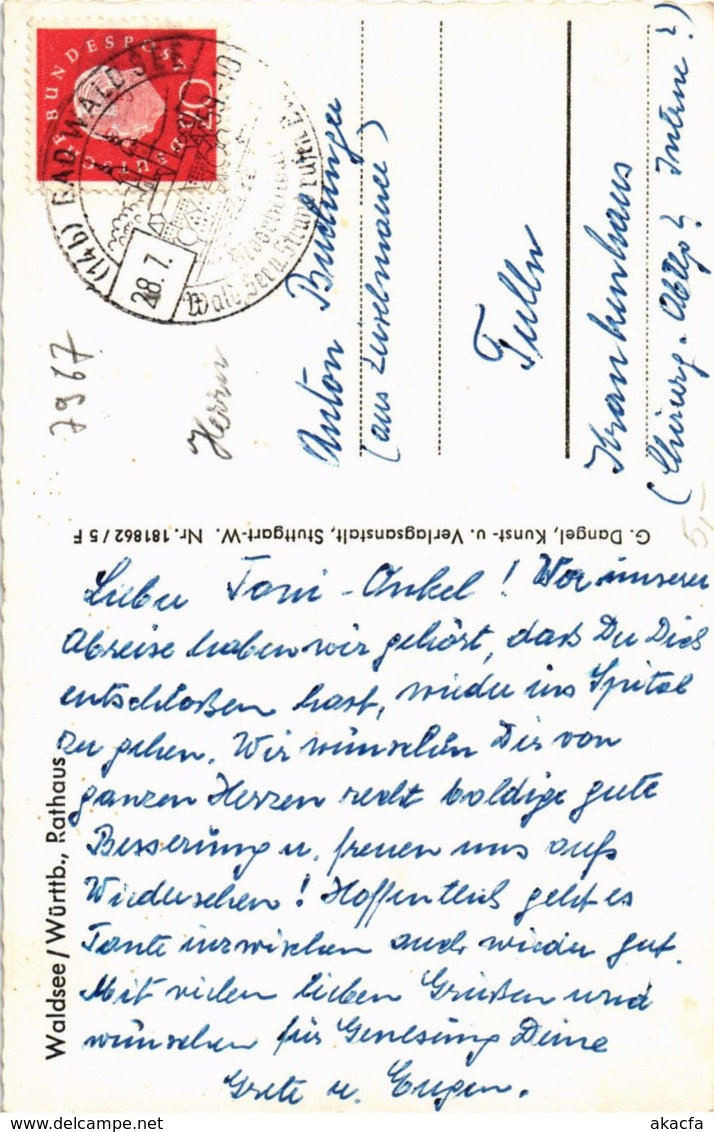 DEUTSCHE BUNDESPOST
(14b) BAD WALDSEE
28. 7.
7967
Herrn
Anton
(aus
Tulln
Krankenhaus
(Chirurg. Abtlg? Interne?)
5,-
G. Dangel, Kunst- u. Verlagsanstalt, Stuttgart-W. Nr. 181862/5 F
Waldsee/Württb., Rathaus
Lieber Toni-Onkel! Vor unserer
Abreise haben wir gehört, daß Du Dich
entschloßen hast, wieder ins Spital
zu gehen. Wir wünschen Dir von
ganzen Herzen recht baldige gute
Besserung u. freuen uns aufs
Wiedersehen! Hoffentlich geht es
Tante inzwischen auch wieder gut.
Mit vielen lieben Grüßen und
wünschen für Genesung Deine
Grete u. Eugen.
akacfa